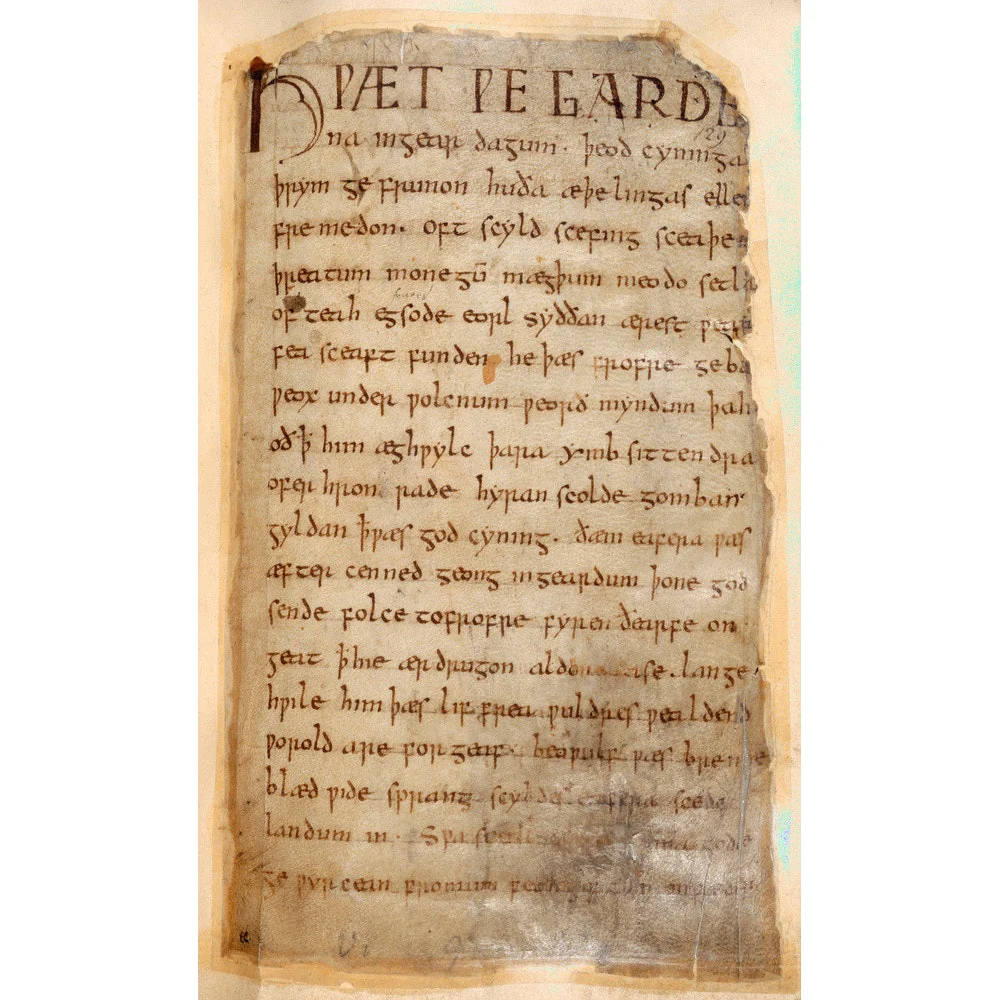 HǷÆT ǷE GARDE
na ingear dagum. þeod cyninga
þrym ge frunon huða æþelingas ellen
fremedon. oft scyld scefing sceaþe
þreatum monegū mægþum meodo setla
of teah egsode eorl syððan ærest ƿear
fea sceaft funden he þæs frofre geba
ƿeox under ƿolcnum ƿeorð myndum þah
oð ꝥ him æghƿylc þara ymb sittendra
ofer hron rade hyran scolde gomban
gyldan ꝥ ƿæs god cyning. ðæm eafera ƿæs
æfter cenned geong ingeardum þone god
sende folce tofrofre fyren ðearfe on
geat ꝥ hie ær drugon aldor ase. lange
hƿile him þæs lif frea ƿuldres ƿealdend
ƿorold are for geaf. beoƿulf ƿæs breme
blæd ƿide sprang scyldes eafera scede
landum in. Sƿa sceal
ge ƿyrcean fromum
129